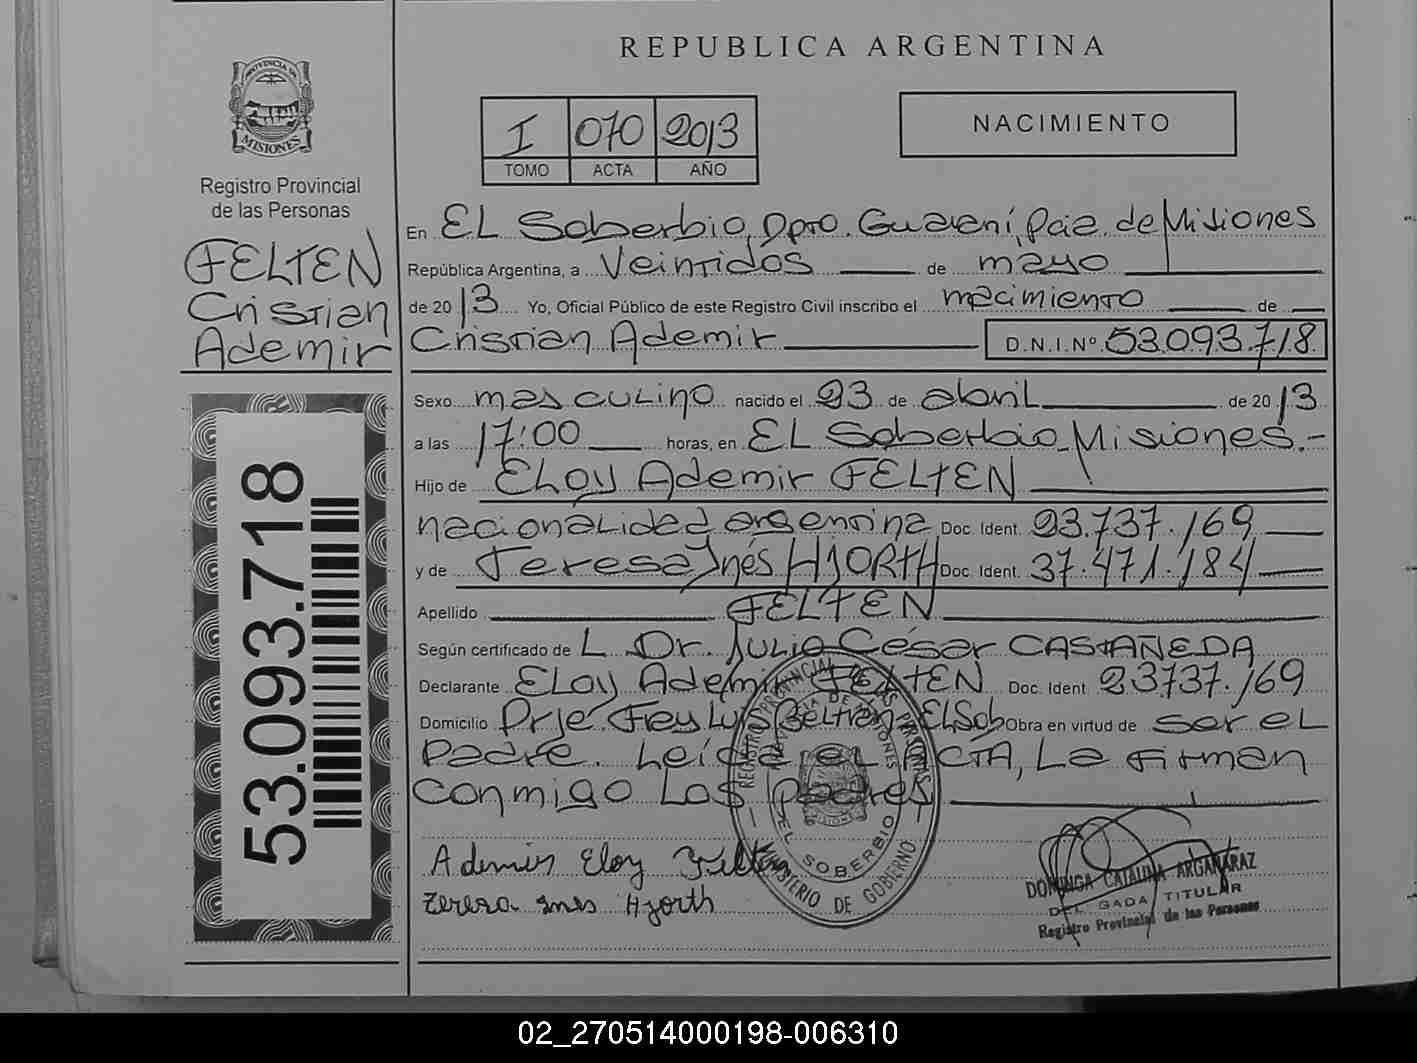 REPUBLICA ARGENTINA
PROVINCIA DE
MISIONES
Registro Provincial
de las Personas
FELTEN
Cristian
Ademir
53.093.718
I 070 2013
TOMO ACTA AÑO
NACIMIENTO
En EL Soberbio, Dpto. Guaraní, Pcia. de Misiones
República Argentina, a Veintidos de mayo
de 2013 Yo, Oficial Público de este Registro Civil inscribo el nacimiento de
Cristian Ademir D.N.I.Nº 53.093.718
Sexo masculino nacido el 23 de abril de 2013
a las 17:00 horas, en EL Soberbio Misiones.-
Hijo de ELOY Ademir FELTEN
nacionalidad argentina Doc. Ident. 23.737.169
y de Teresa Inés HJORTH Doc. Ident. 37.471.184
Apellido FELTEN
Según certificado de L Dr. Julio Cesar CASTAÑEDA
Declarante ELOY Ademir FELTEN Doc. Ident 23737.169
Domicilio Prje Frey Luis Beltran - El Sob Obra en virtud de ser el
Padre. Leída el ACTA, La firman
conmigo Los Padres
Ademir Eloy Felten
Teresa Ines Hjorth
REGISTRO PROVINCIAL DE LAS PERSONAS
PROVINCIA DE MISIONES
EL SOBERBIO
MINISTERIO DE GOBIERNO
DOMINGA CATALINA ARGAÑARAZ
DELEGADA TITULAR
Registro Provincial de las Personas
02_270514000198-006310